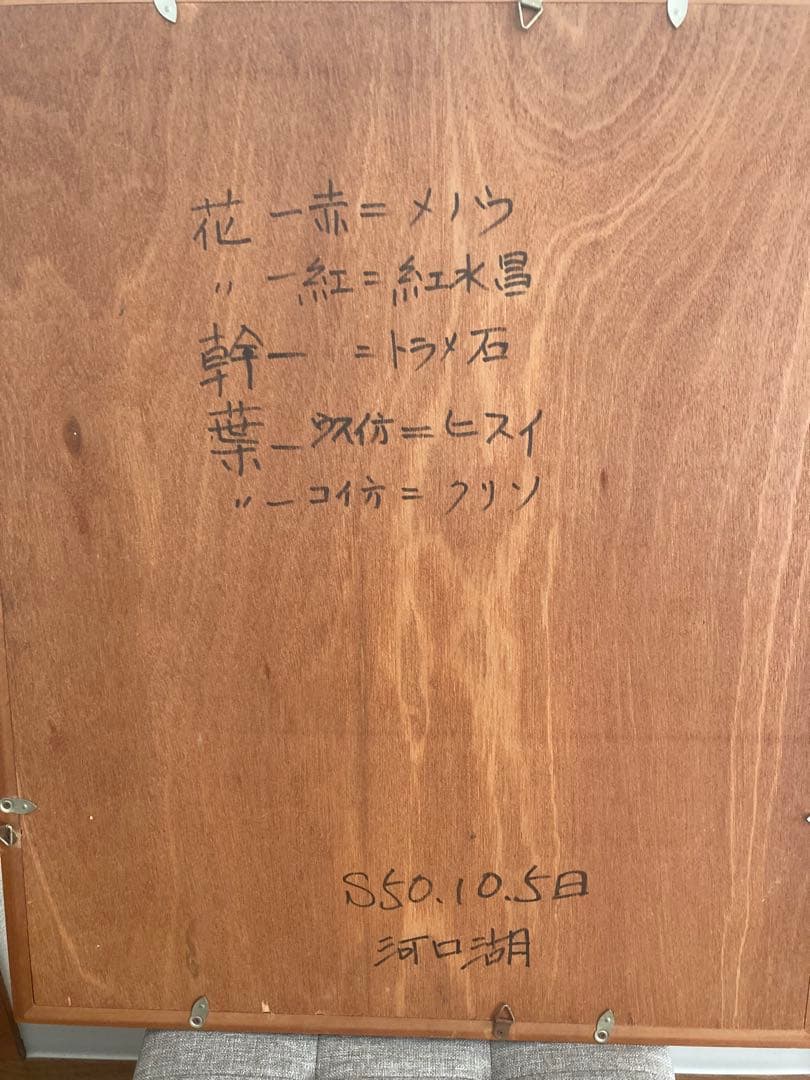 花ー赤＝メノウ
〃ー紅＝紅水晶
幹ー　＝トラメ石
葉ーウスイ方＝ヒスイ
〃ーコイ方＝クリソ
S50.10.5日
河口湖